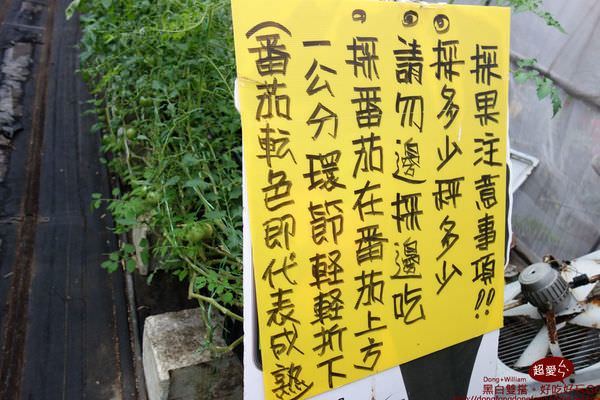 採果注意事項!!
採多少秤多少
請勿邊採邊吃
採番茄在番茄上方
一公分環節輕輕折下
(番茄転色即代表成熟)
超愛ㄣ
Dong+William
黑白雙搭。好吃好玩